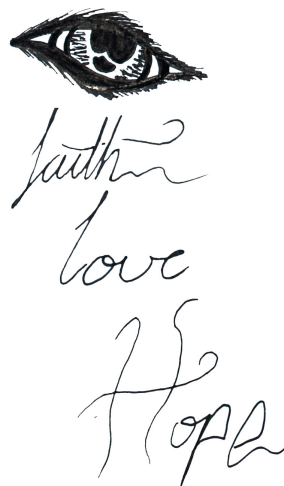 faith
love
Hope